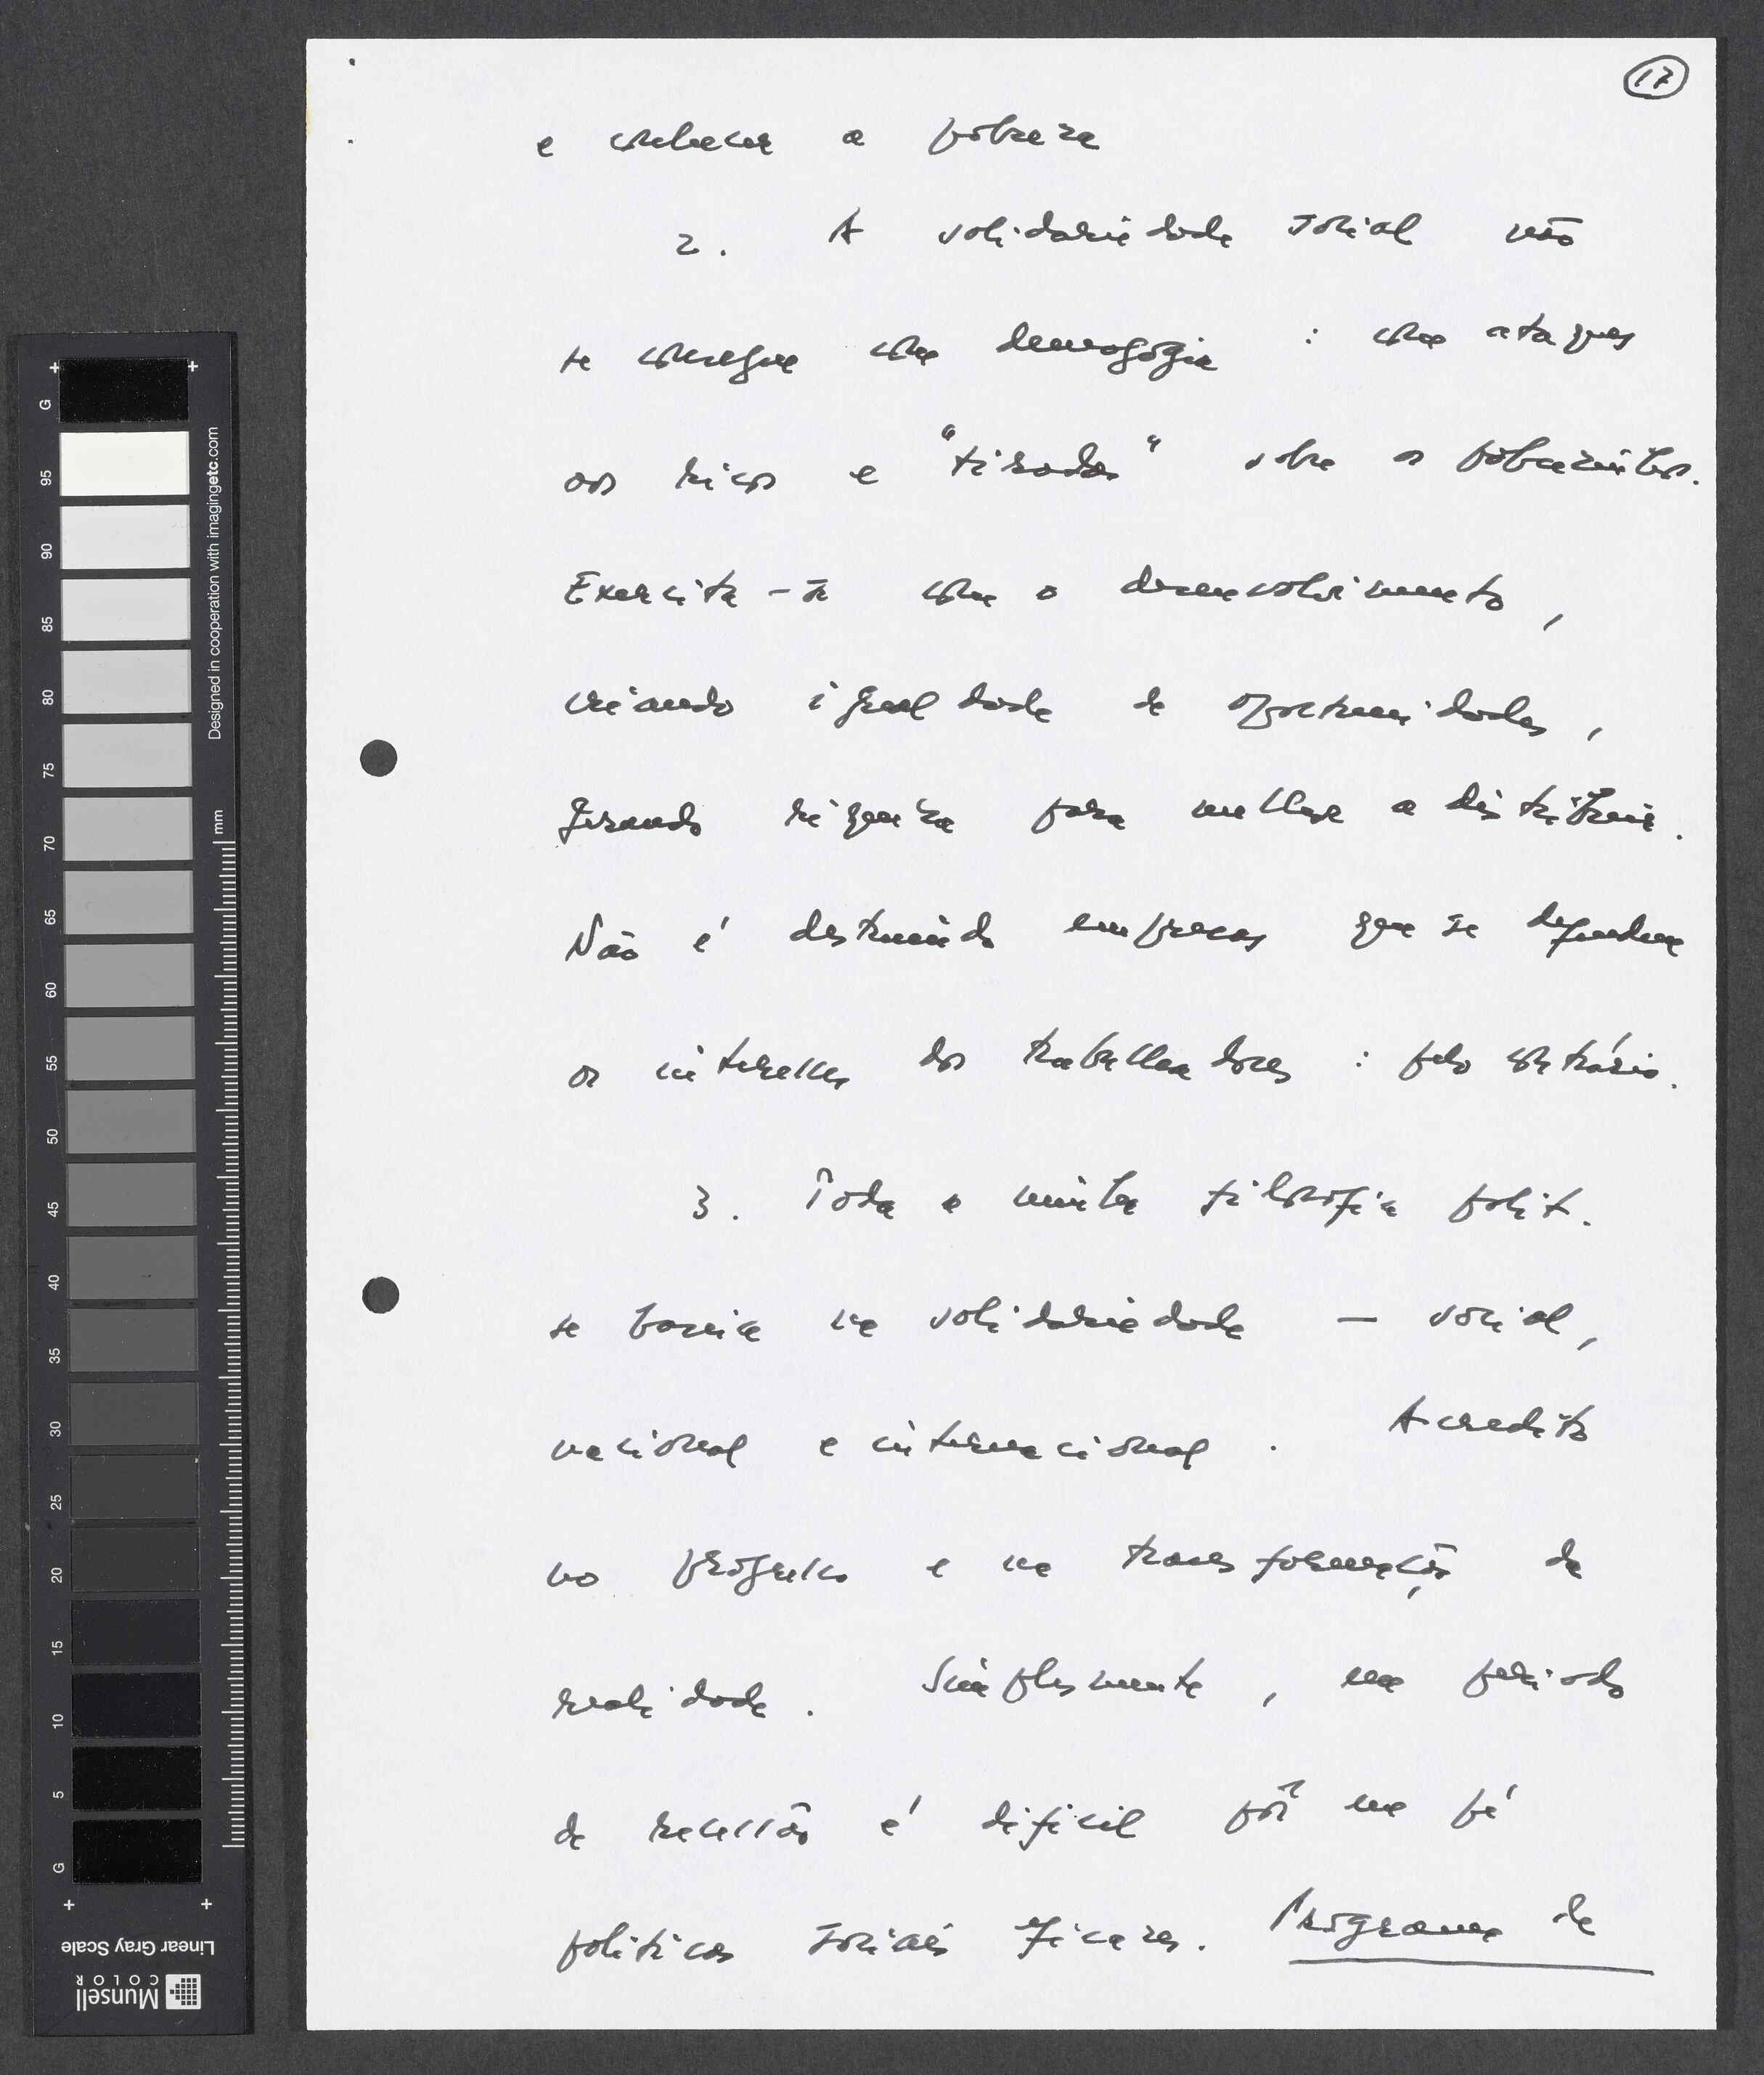 17
e combater a pobreza
2. A solidariedade social não
se consegue com demagogia : com ataques
aos ricos e "tiradas" sobre os pobrezinhos.
Exercita-se com o desenvolvimento,
criando igualdade de oportunidades,
gerando riqueza para melhor a distribuir.
Não é destruindo empresas que se defendem
os interesses dos trabalhadores : pelo contrário.
3. Toda a minha filosofia polít.
se baseia na solidariedade — social,
nacional e internacional. Acredito
no progresso e na transformação da
realidade. Simplesmente, em período
de recessão é difícil pôr em pé
políticas sociais eficazes. Programa de
G 95 90 85 80 75 70 65 60 55 50 45 40 35 30 25 20 15 10 5 G
Designed in cooperation with imagingetc.com
mm
Linear Gray Scale
Munsell
COLOR